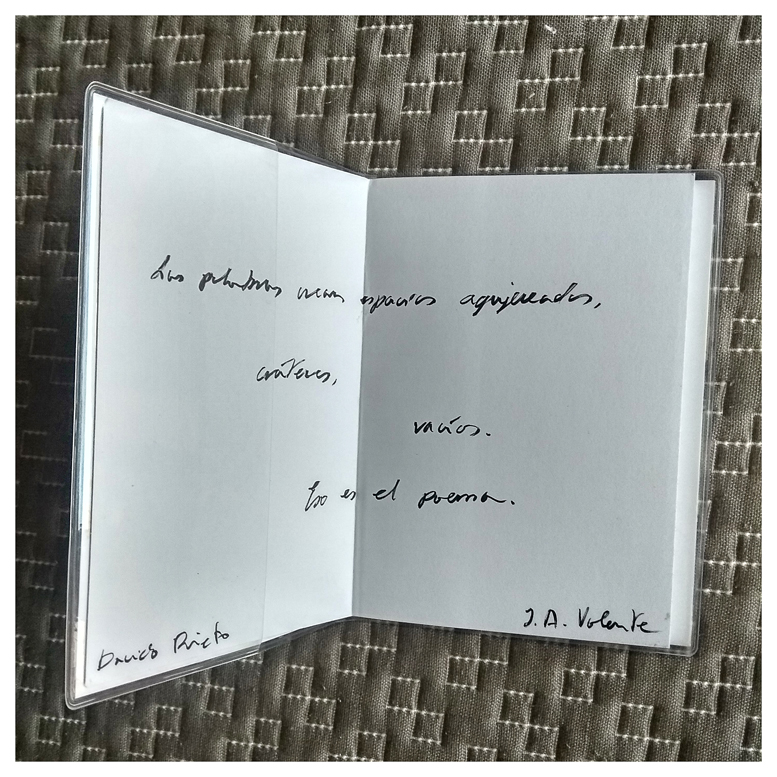 Las palabras crean espacios agujereados,
cráteres,
vacíos.
Eso es el poema.
David Prieto
J. A. Valente